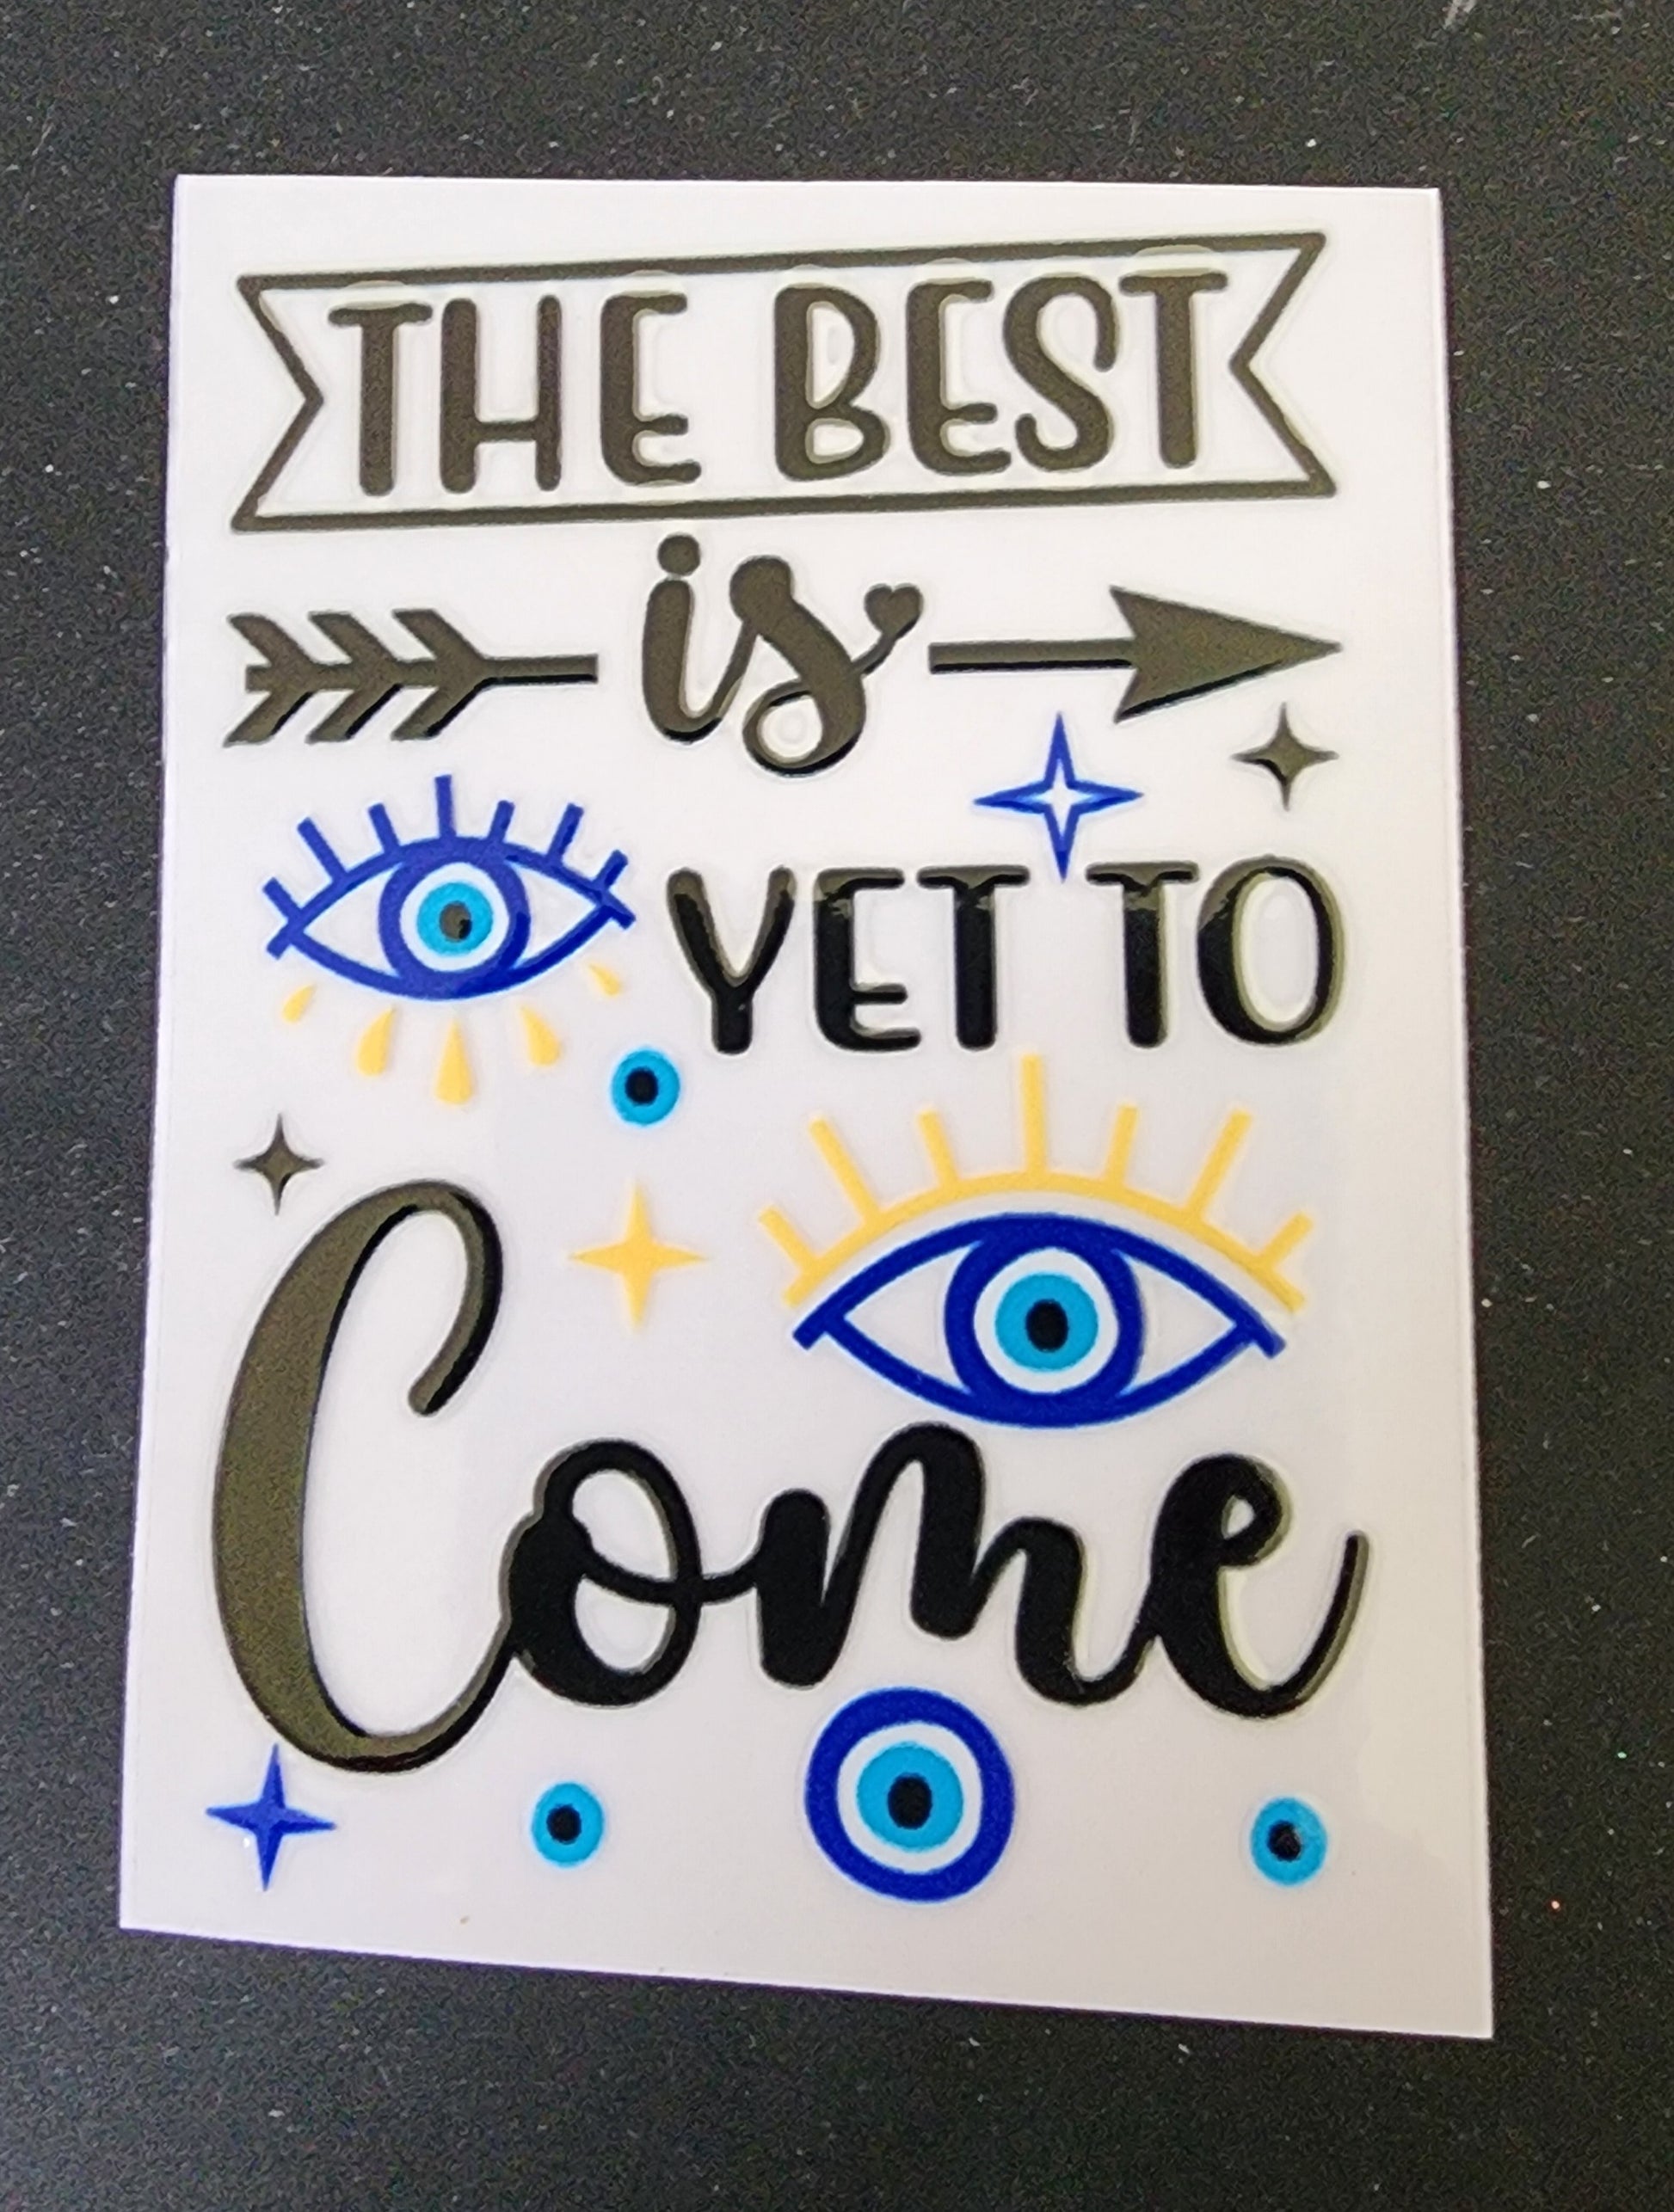 THE BEST
is
YET TO
Come